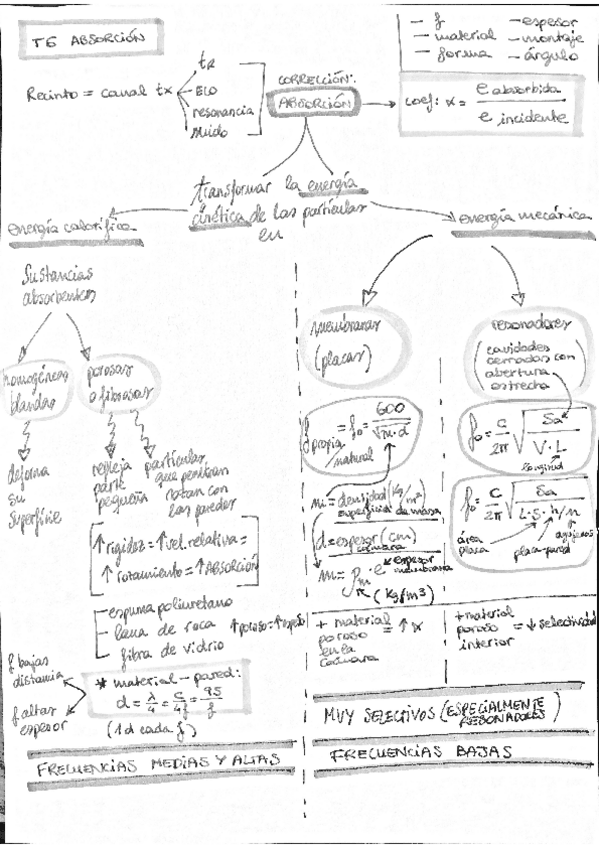 T6 ABSORCIÓN
Recinto = canal tx
tR
ECO
resonancia
ruido
CORRECCIÓN:
ABSORCIÓN
- f
- material
- forma
- espesor
- montaje
- ángulo
coef: α = e absorbida / e incidente
transformar la energía
cinética de las partículas
en
energía calorífica
energía mecánica
Sustancias
absorbentes
homogéneas
blandas
porosas
o fibrosas
deforma
su
superficie
refleja
parte
pequeña
partículas
que penetran
rozan con
las paredes
↑ rigidez = ↑ vel. relativa =
↑ rozamiento = ↑ ABSORCIÓN
- espuma poliuretano
- lana de roca
- fibra de vidrio
↑ poroso = ↑ espesor
f bajas
distancia
f altas
espesor
* material - pared:
d = λ/4 = C/4f = 85/f
(1 d cada f)
FRECUENCIAS MEDIAS Y ALTAS
membranas
(placas)
f propia/natural = f₀ = 600/√(m·d)
m = densidad (kg/m²)
superficial de masa
d = espesor (cm)
cámara
m = ρm · e espesor membrana
(kg/m³)
+ material
poroso
en la
cámara
= ↑ α
resonadores
(cavidades
cerradas con
abertura
estrecha
f₀ = C/2π √(Sa / V·L)
longitud
f₀ = C/2π √(Sa / L·S·h/n)
área
placa
placa-pared
agujeros
+ material
poroso
interior
= ↓ selectividad
MUY SELECTIVOS (ESPECIALMENTE
RESONADORES)
FRECUENCIAS BAJAS